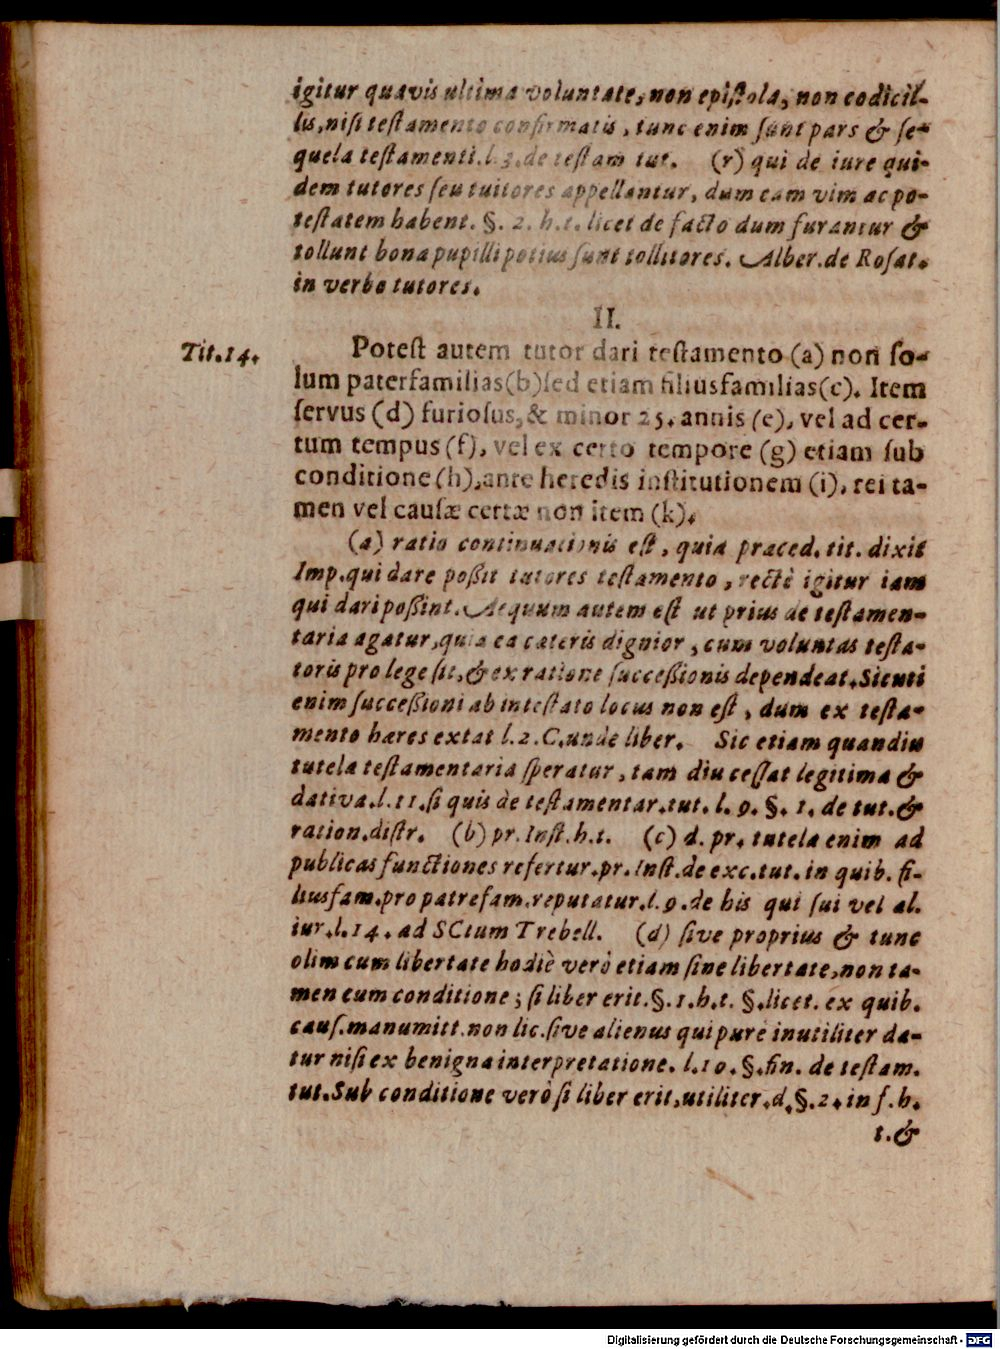 igitur quavis ultima voluntate, non epiſtola, non codicil-
lis, niſi teſtamento confirmatis, tunc enim ſunt pars & ſe-
quela teſtamenti. l. 3. de teſtam tut. (r) qui de iure qui-
dem tutores ſeu tuitores appellantur, dum eam vim ac po-
teſtatem habent. §. 2. h. t. licet de facto dum furantur &
tollunt bona pupilli potius ſunt tollitores. Alber. de Roſat.
in verbo tutores.
II.
Tit. 14.
Poteſt autem tutor dari teſtamento (a) non ſo-
lum paterfamilias (b) ſed etiam filiusfamilias (c). Item
ſervus (d) furioſus, & minor 25. annis (e), vel ad cer-
tum tempus (f), vel ex certo tempore (g) etiam ſub
conditione (h), ante heredis inſtitutionem (i), rei ta-
men vel cauſæ certæ non item (k).
(a) ratio continuationis eſt, quia præced. tit. dixit
Imp. qui dare poßit tutores teſtamento, rectè igitur iam
qui dari poßint. Aequum autem eſt ut prius de teſtamen-
taria agatur, quia ea cæteris dignior, cum voluntas teſta-
toris pro lege ſit, & ex ratione ſucceßionis dependeat. Sicuti
enim ſucceßioni ab inteſtato locus non eſt, dum ex teſta-
mento hæres extat l. 2. C. unde liber. Sic etiam quandiu
tutela teſtamentaria ſperatur, tam diu ceſſat legitima &
dativa. l. 11. ſi quis de teſtamentar. tut. l. 9. §. 1. de tut. &
ration. diſtr. (b) pr. Inſt. h. t. (c) d. pr. tutela enim ad
publicas functiones refertur. pr. Inſt. de exc. tut. in quib. fi-
liusfam. pro patrefam. reputatur. l. 9. de his qui ſui vel al.
iur. l. 14. ad SCtum Trebell. (d) ſive proprius & tunc
olim cum libertate hodiè verò etiam ſine libertate, non ta-
men cum conditione; ſi liber erit. §. 1. h. t. §. licet. ex quib.
cauſ. manumitt. non lic. ſive alienus qui pure inutiliter da-
tur niſi ex benigna interpretatione. l. 10. §. fin. de teſtam.
tut. Sub conditione verò ſi liber erit, utiliter. d. §. 2. in f. h.
t. &
Digitalisierung gefördert durch die Deutsche Forschungsgemeinschaft - DFG